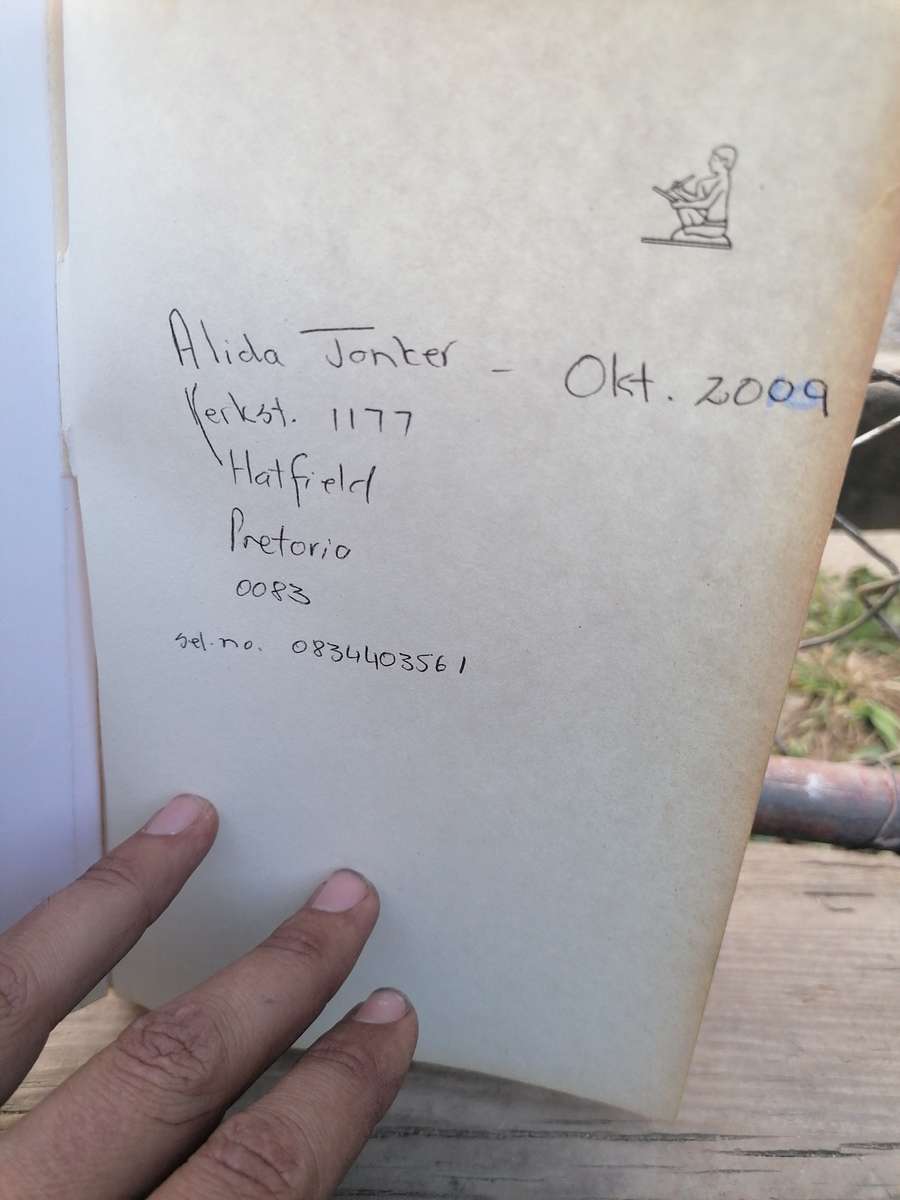 Alida Jonker - Okt. 2009
Kerkst. 1177
Hatfield
Pretoria
0083
sel.no. 0834403561